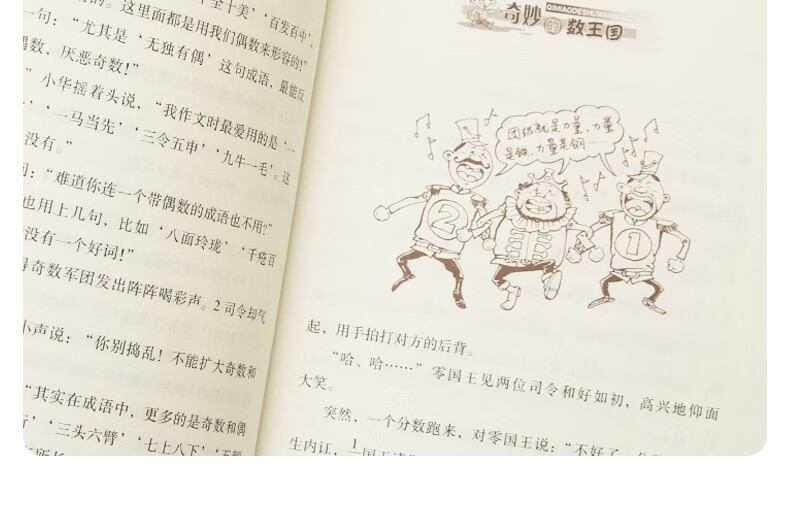 全十美’‘百发百中’,
的。这里面都是用我们偶数来形容的!
“尤其是‘无独有偶’这句成语,最能反
偶数、厌恶奇数!”
”小华摇着头说,“我作文时最爱用的是‘一
’‘一马当先’‘三令五申’‘九牛一毛’。这
没有。”
:“难道你连一个带偶数的成语也不用?”
也用上几句,比如‘八面玲珑’‘千疮百
没有一个好词!”
得奇数军团发出阵阵喝彩声。2司令却气
小声说:“你别捣乱!不能扩大奇数和
“其实在成语中,更多的是奇数和偶
’‘三头六臂’‘七上八下’
奇妙的数王国
QIMIAODESHUWANGGUO
团结就是力量,力量
是铁,力量是钢……
2
1
起,用手拍打对方的后背。
“哈、哈……”零国王见两位司令和好如初,高兴地仰面
大笑。
突然,一个分数跑来,对零国王说:“不好了,
生内讧,